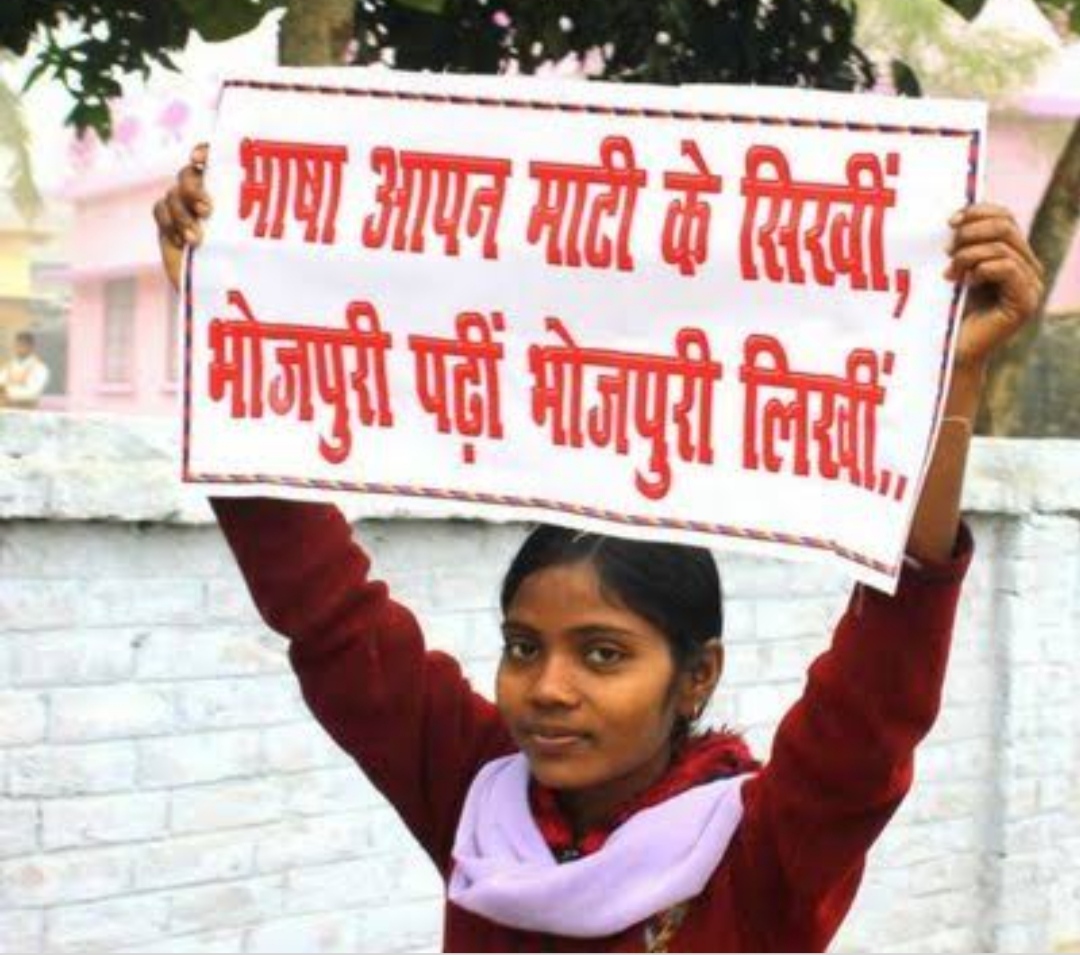 भाषा आपन माटी के सिखीं,
भोजपुरी पढ़ीं भोजपुरी लिखीं..